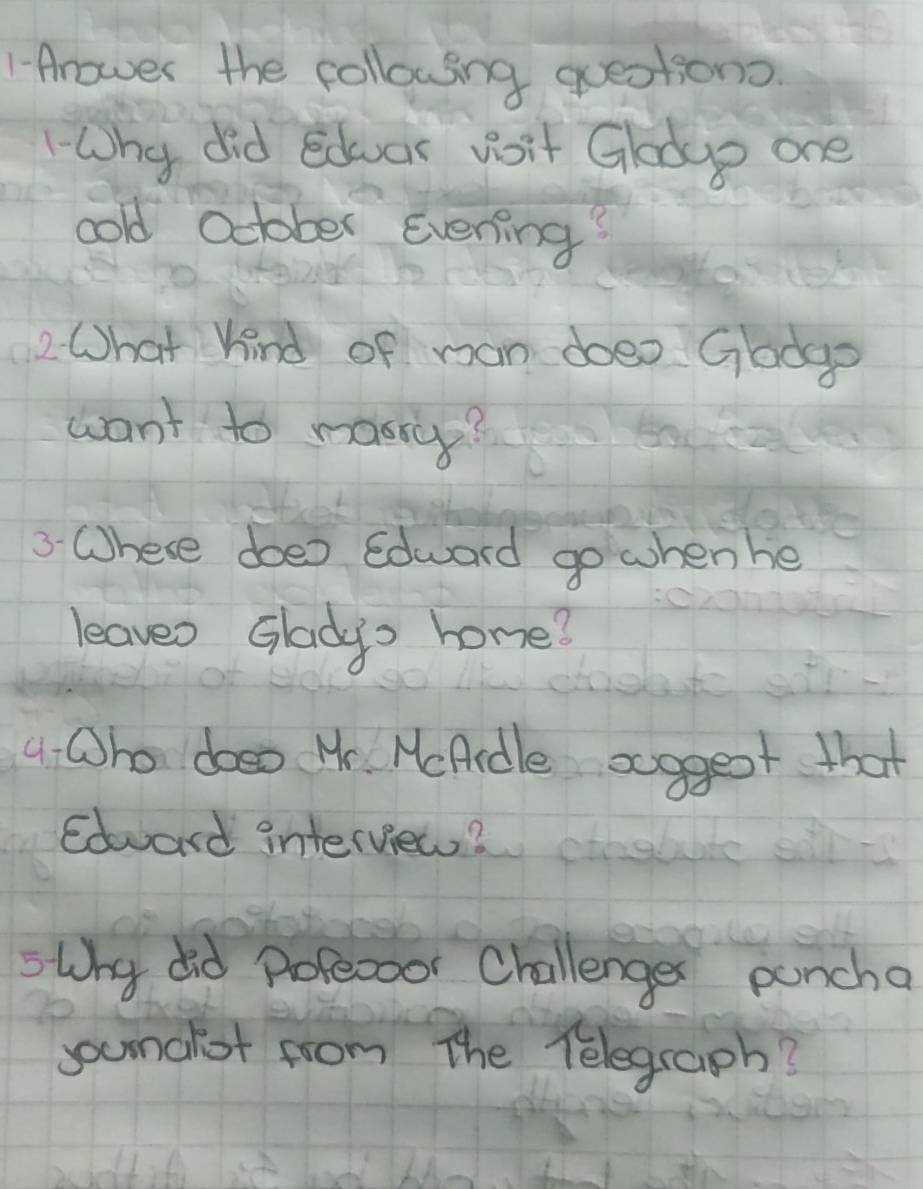 1-Answer the following questions.
1-Why did Edwar visit Gladys one
cold October Evening?
2-What kind of man does Gladys
want to marry?
3-Where does Edward go when he
leaves Gladys home?
4-Who does Mr. McArdle suggest that
Edward interview?
5-Why did Pofessor Challenger punch a
journalist from The Telegraph?